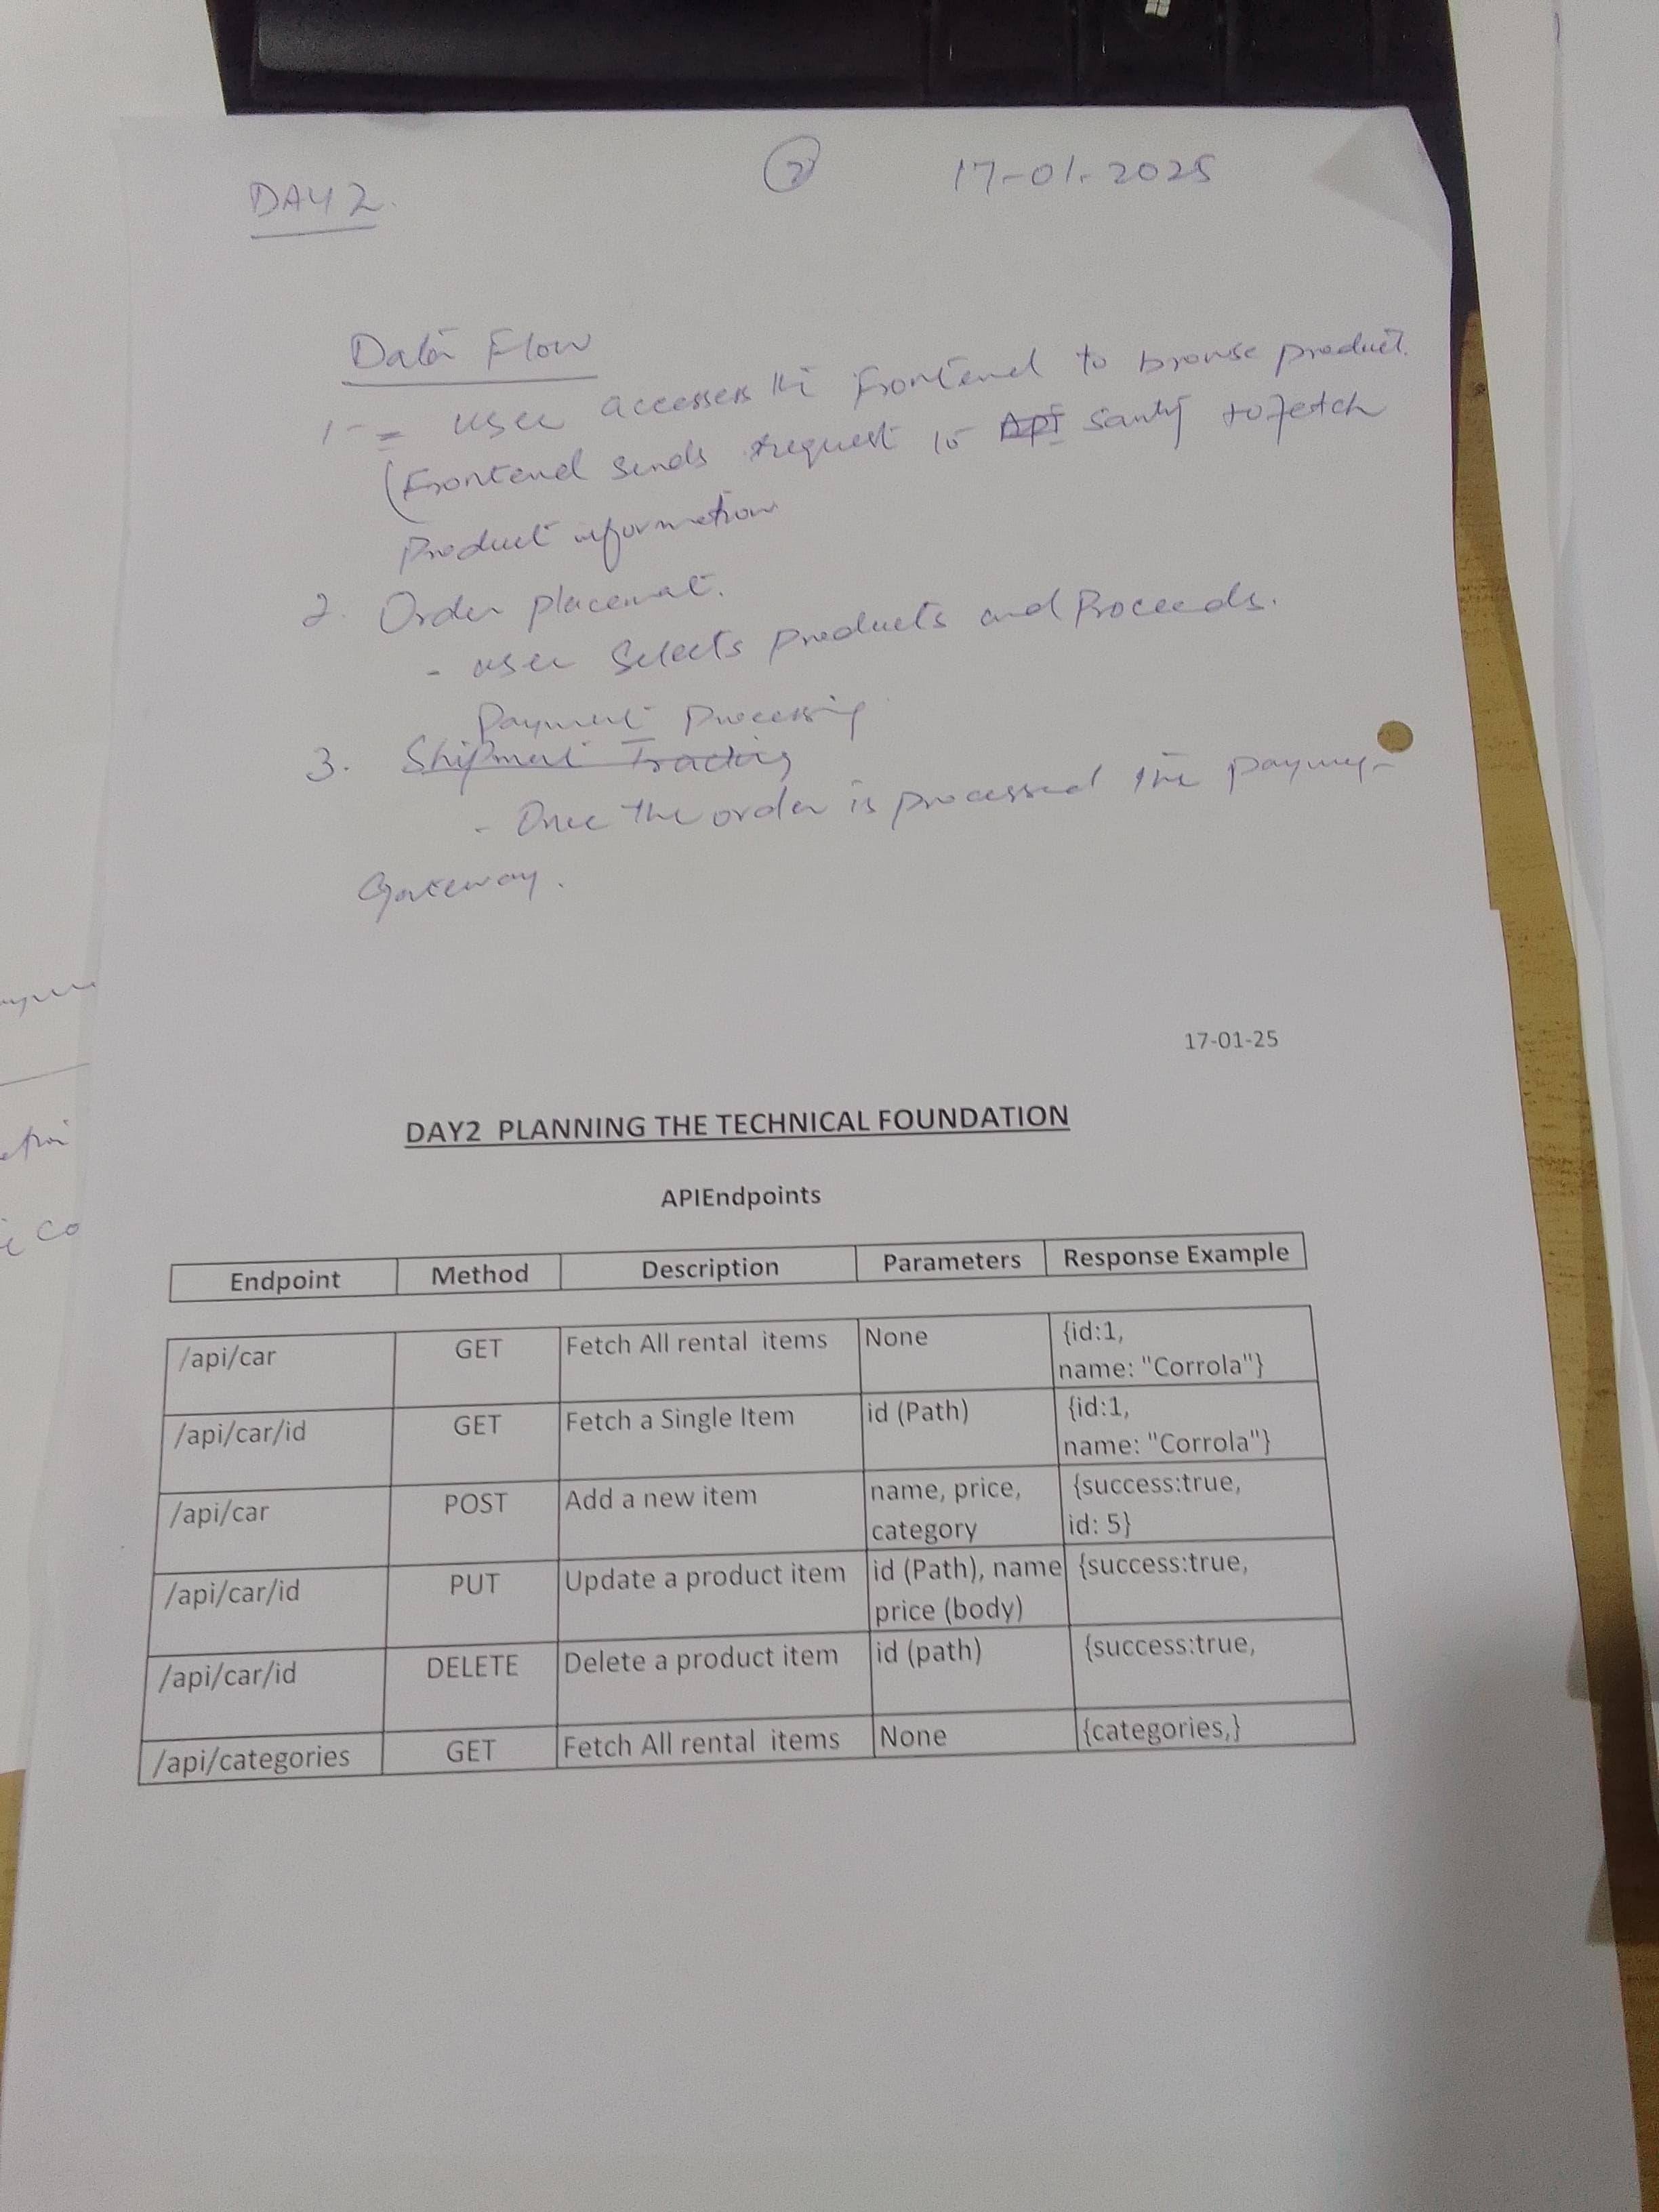 DAY 2.
2
17-01-2025
Data Flow
1- = user accesses the Frontend to browse product.
(Frontend sends request to API Sanity to fetch
Product information
2. Order placemat.
- user Selects products and Proceeds.
Payment Processing
3. Shipment Tracking
- Once the order is processed the payme-
Gateway.
17-01-25
DAY2 PLANNING THE TECHNICAL FOUNDATION
APIEndpoints
Endpoint Method Description Parameters Response Example
/api/car GET Fetch All rental items None {id:1,
name: "Corrola"}
/api/car/id GET Fetch a Single Item id (Path) {id:1,
name: "Corrola"}
/api/car POST Add a new item name, price, {success:true,
category id: 5}
/api/car/id PUT Update a product item id (Path), name {success:true,
price (body)
/api/car/id DELETE Delete a product item id (path) {success:true,
/api/categories GET Fetch All rental items None {categories,}